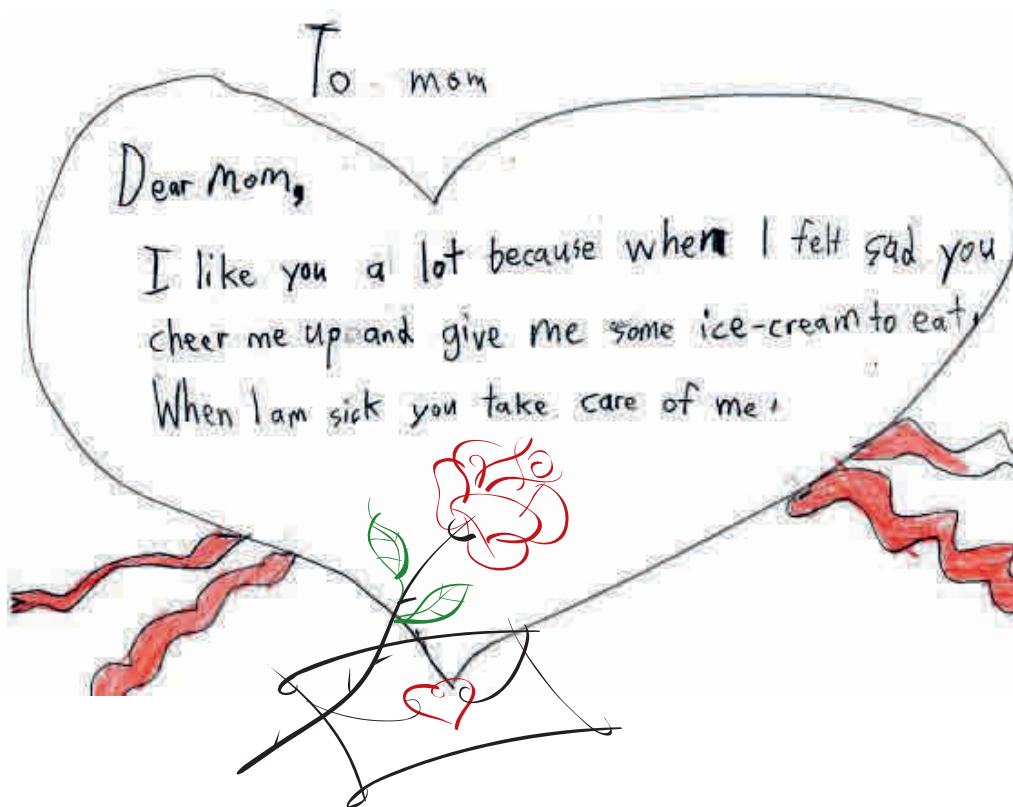 To mom
Dear Mom,
I like you a lot because when I felt sad you
cheer me up and give me some ice-cream to eat,
When I am sick you take care of me.